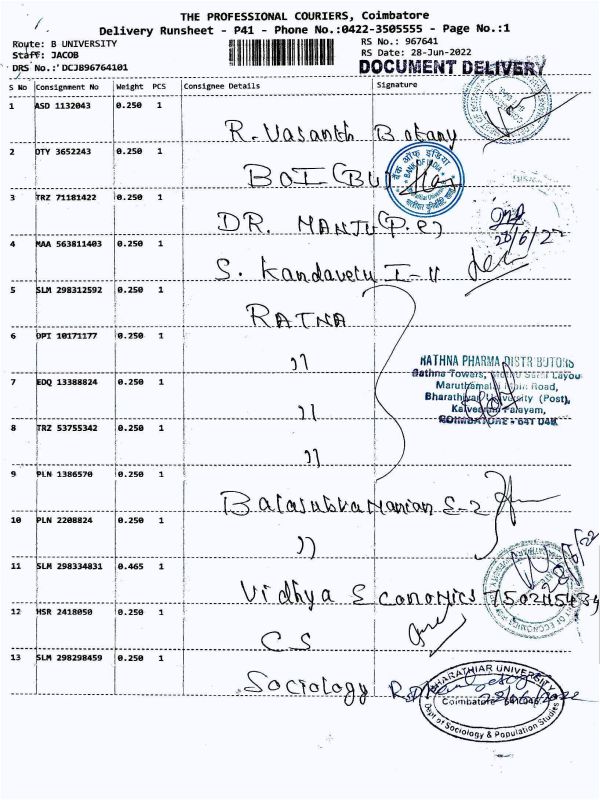 THE PROFESSIONAL COURIERS, Coimbatore
Delivery Runsheet - P41 - Phone No.:0422-3505555 - Page No.:1
Route: B UNIVERSITY
RS No.: 967641
Staff: JACOB
RS Date: 28-Jun-2022
DRS No.: DCJB96764101
DOCUMENT DELIVERY
S No Consignment No Weight PCS Consignee Details Signature
1 ASD 1132043 0.250 1
R. Vasanth Botany
2 DTY 3652243 0.250 1
BOI (BU)
बैंक ऑफ इंडिया
BANK OF INDIA
3 TRZ 71181422 0.250 1
DR. MANJU (P.E)
28/6/22
4 MAA 563811403 0.250 1
S. Kandavelu I-U
5 SLM 298312592 0.250 1
RATNA
6 OPI 10171177 0.250 1
"
RATHNA PHARMA DISTRIBUTORS
Rathna Towers, Layou
Maruthamalai Main Road,
Bharathiyar University (Post),
Kalveerampalayam,
COIMBATORE - 641 046
7 EDQ 13388824 0.250 1
"
8 TRZ 53755342 0.250 1
"
9 PLN 1386570 0.250 1
Balasubramanian E-2
10 PLN 2208824 0.250 1
"
11 SLM 298334831 0.465 1
Vidhya Economics
OF ECONOMICS
12 HSR 2418050 0.250 1
CS
13 SLM 298298459 0.250 1
Sociology
BHARATHIAR UNIVERSITY
Coimbatore 641 046
Dept of Sociology & Population Studies